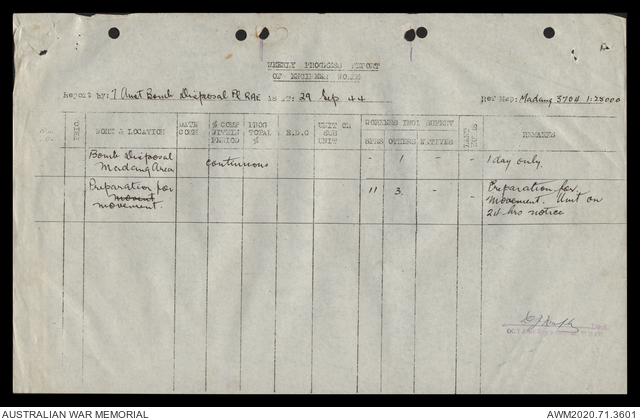 WEEKLY PROGRESS REPORT
OF ENGINEER WORKS
Report by: 7 Aust Bomb Disposal Pl RAE 29 Sep 44 Ref Map: Madang 3704 1:25000
WORK & LOCATION DATE COMM % COMP WITHIN PERIOD PROG TOTAL % E.D.C UNIT OR SUB UNIT WORKERS INCL SUPERV SPRS OTHERS NATIVES REMARKS
Bomb Disposal Madang Area continuous - 1 - - 1 day only.
Preparation for movent movement. 11 3. - - Preparation for movement. Unit on 24 hrs notice
AUSTRALIAN WAR MEMORIAL AWM2020.71.3601